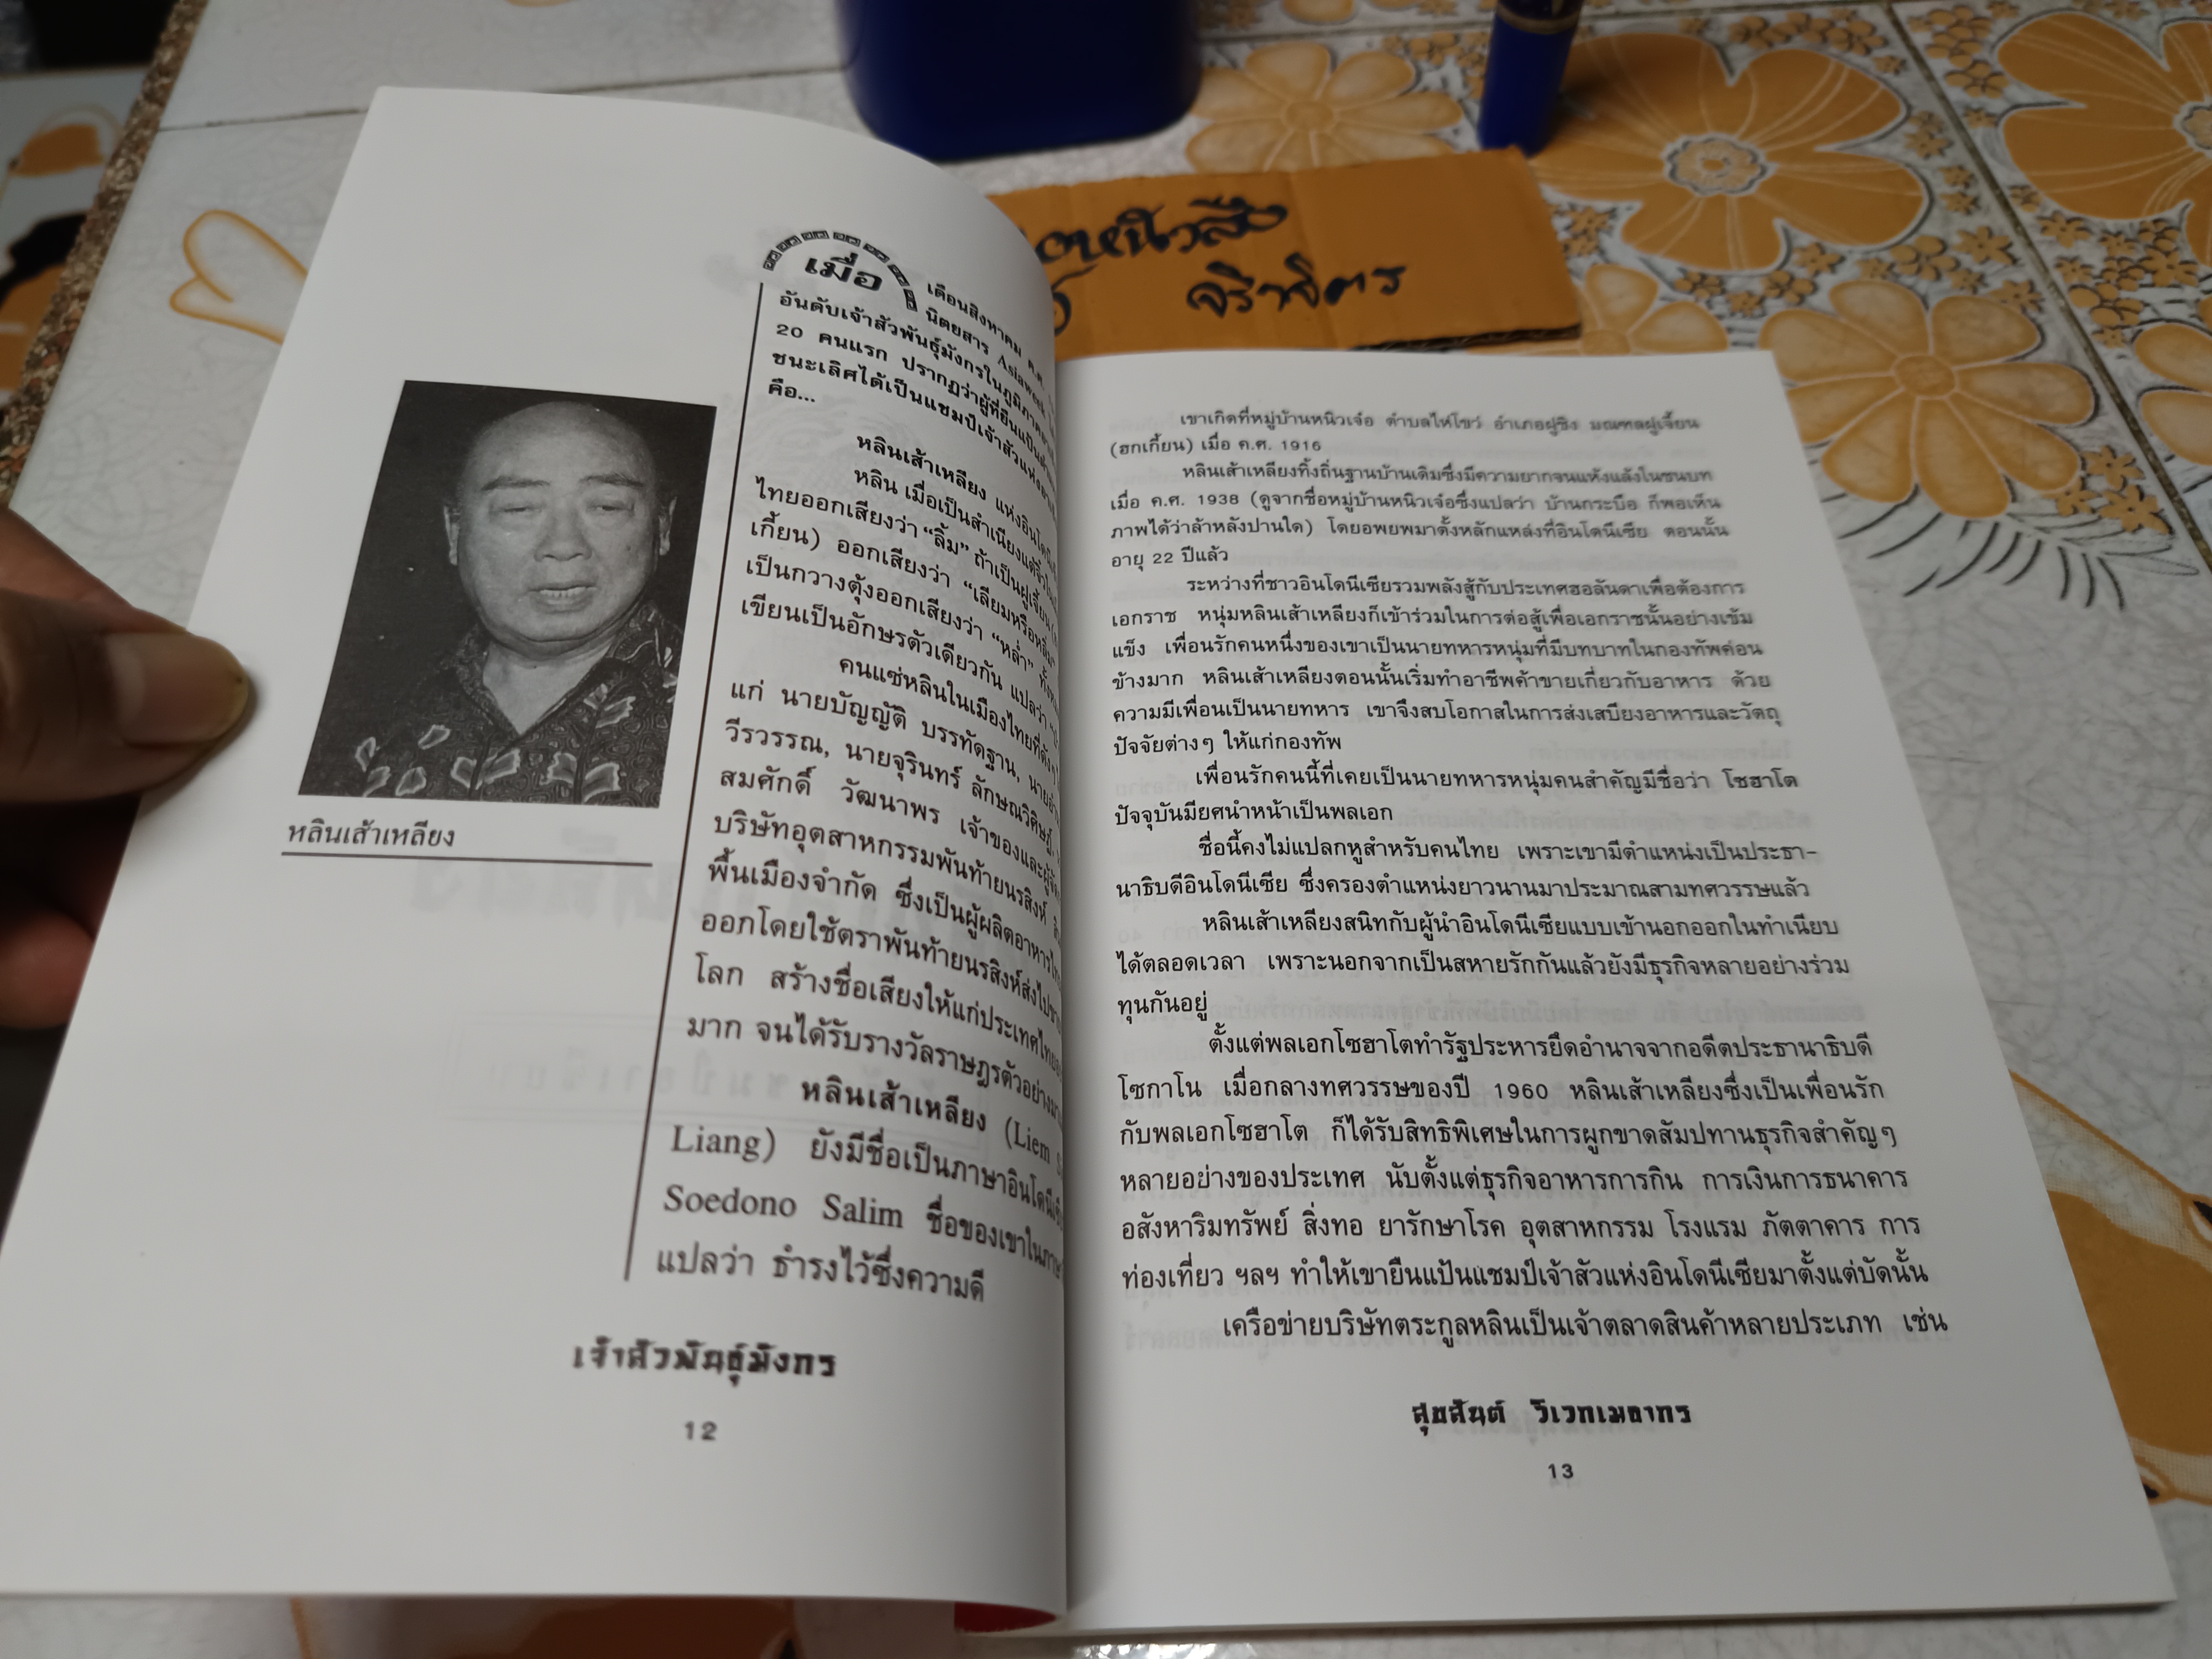 เมื่อ
เดือนสิงหาคม ค.ศ.
นิตยสาร Asiaweek
อันดับเจ้าสัวพันธุ์มังกรในภูมิภาค
20 คนแรก ปรากฏว่าผู้ที่ยืนแป้น
ชนะเลิศได้เป็นแชมป์เจ้าสัวแห่ง
คือ...
หลินเส้าเหลียง แห่งอินโดนีเซีย
หลิน เมื่อเป็นสำเนียงแต้จิ๋ว
ไทยออกเสียงว่า “ลิ้ม” ถ้าเป็นฝูเจี้ยน
เกี้ยน) ออกเสียงว่า “เลียมหรือหลิม”
เป็นกวางตุ้งออกเสียงว่า “หล่ำ”
เขียนเป็นอักษรตัวเดียวกัน แปลว่า
คนแซ่หลินในเมืองไทยที่ดังๆ
แก่ นายบัญญัติ บรรทัดฐาน,
วีรวรรณ, นายจุรินทร์ ลักษณวิศิษฏ์,
สมศักดิ์ วัฒนาพร เจ้าของและ
บริษัทอุตสาหกรรมพันท้ายนรสิงห์
พื้นเมืองจำกัด ซึ่งเป็นผู้ผลิตอาหาร
ออกโดยใช้ตราพันท้ายนรสิงห์ส่งไป
โลก สร้างชื่อเสียงให้แก่ประเทศไทย
มาก จนได้รับรางวัลราษฎรตัวอย่าง
หลินเส้าเหลียง (Liem
Liang) ยังมีชื่อเป็นภาษาอินโดนีเซีย
Soedono Salim ชื่อของเขาใน
แปลว่า ธำรงไว้ซึ่งความดี
หลินเส้าเหลียง
เจ้าสัวพันธุ์มังกร
12
เขาเกิดที่หมู่บ้านหนิวเจ๋อ ตำบลไห่โขว่ อำเภอฝูชิง มณฑลฝูเจี้ยน
(ฮกเกี้ยน) เมื่อ ค.ศ. 1916
หลินเส้าเหลียงทิ้งถิ่นฐานบ้านเดิมซึ่งมีความยากจนแห้งแล้งในชนบท
เมื่อ ค.ศ. 1938 (ดูจากชื่อหมู่บ้านหนิวเจ๋อซึ่งแปลว่า บ้านกระบือ ก็พอเห็น
ภาพได้ว่าล้าหลังปานใด) โดยอพยพมาตั้งหลักแหล่งที่อินโดนีเซีย ตอนนั้น
อายุ 22 ปีแล้ว
ระหว่างที่ชาวอินโดนีเซียรวมพลังสู้กับประเทศฮอลันดาเพื่อต้องการ
เอกราช หนุ่มหลินเส้าเหลียงก็เข้าร่วมในการต่อสู้เพื่อเอกราชนั้นอย่างเข้ม
แข็ง เพื่อนรักคนหนึ่งของเขาเป็นนายทหารหนุ่มที่มีบทบาทในกองทัพค่อน
ข้างมาก หลินเส้าเหลียงตอนนั้นเริ่มทำอาชีพค้าขายเกี่ยวกับอาหาร ด้วย
ความมีเพื่อนเป็นนายทหาร เขาจึงสบโอกาสในการส่งเสบียงอาหารและวัตถุ
ปัจจัยต่างๆ ให้แก่กองทัพ
เพื่อนรักคนนี้ที่เคยเป็นนายทหารหนุ่มคนสำคัญมีชื่อว่า โซฮาโต
ปัจจุบันมียศนำหน้าเป็นพลเอก
ชื่อนี้คงไม่แปลกหูสำหรับคนไทย เพราะเขามีตำแหน่งเป็นประธา-
นาธิบดีอินโดนีเซีย ซึ่งครองตำแหน่งยาวนานมาประมาณสามทศวรรษแล้ว
หลินเส้าเหลียงสนิทกับผู้นำอินโดนีเซียแบบเข้านอกออกในทำเนียบ
ได้ตลอดเวลา เพราะนอกจากเป็นสหายรักกันแล้วยังมีธุรกิจหลายอย่างร่วม
ทุนกันอยู่
ตั้งแต่พลเอกโซฮาโตทำรัฐประหารยึดอำนาจจากอดีตประธานาธิบดี
โซกาโน เมื่อกลางทศวรรษของปี 1960 หลินเส้าเหลียงซึ่งเป็นเพื่อนรัก
กับพลเอกโซฮาโต ก็ได้รับสิทธิพิเศษในการผูกขาดสัมปทานธุรกิจสำคัญๆ
หลายอย่างของประเทศ นับตั้งแต่ธุรกิจอาหารการกิน การเงินการธนาคาร
อสังหาริมทรัพย์ สิ่งทอ ยารักษาโรค อุตสาหกรรม โรงแรม ภัตตาคาร การ
ท่องเที่ยว ฯลฯ ทำให้เขายืนแป้นแชมป์เจ้าสัวแห่งอินโดนีเซียมาตั้งแต่บัดนั้น
เครือข่ายบริษัทตระกูลหลินเป็นเจ้าตลาดสินค้าหลายประเภท เช่น
สุขสันต์ วิเวกเมธากร
13